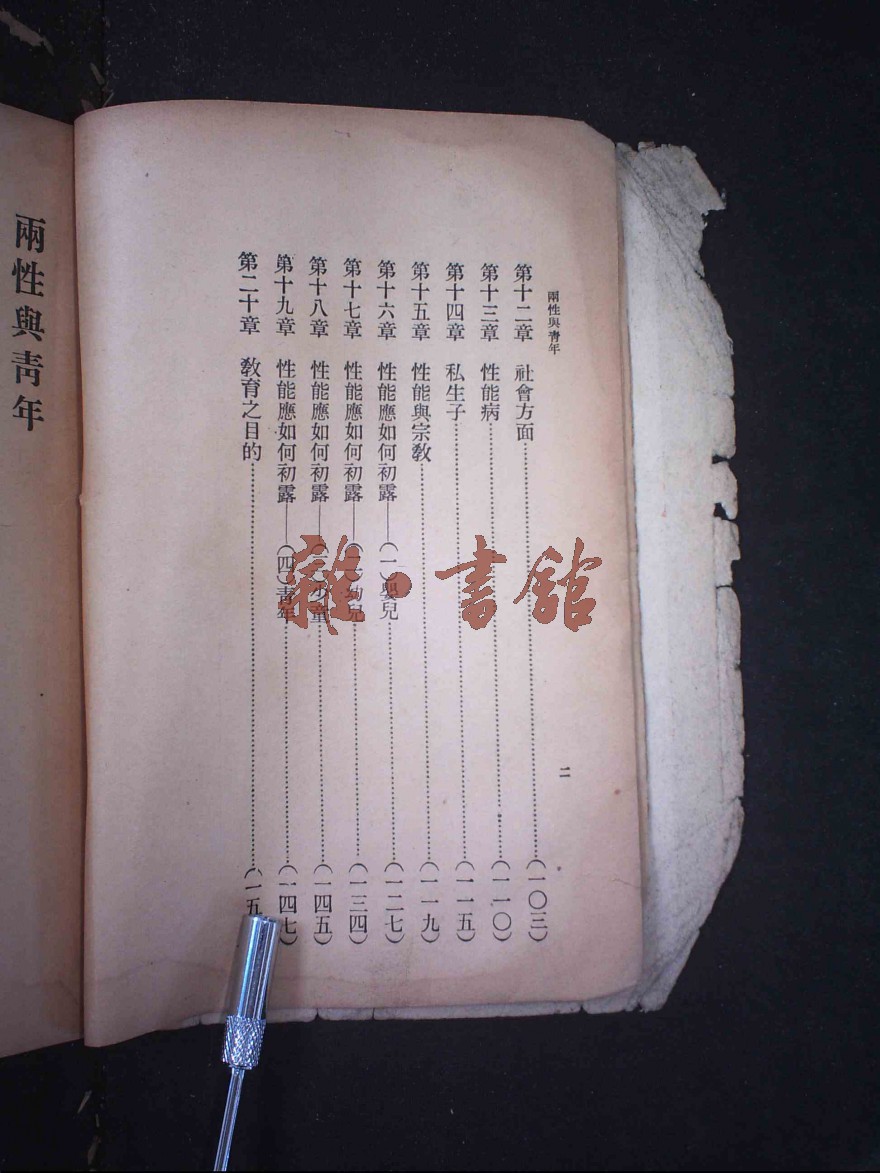 兩性與靑年
第十二章 社會方面……(一〇三)
第十三章 性能病……(一一〇)
第十四章 私生子……(一一五)
第十五章 性能與宗敎……(一一九)
第十六章 性能應如何初露——(一)嬰兒……(一二七)
第十七章 性能應如何初露——(二)幼兒……(一三四)
第十八章 性能應如何初露——(三)少童……(一四五)
第十九章 性能應如何初露——(四)靑年……(一四七)
第二十章 敎育之目的……(一五
二
兩性與靑年
雜·書館